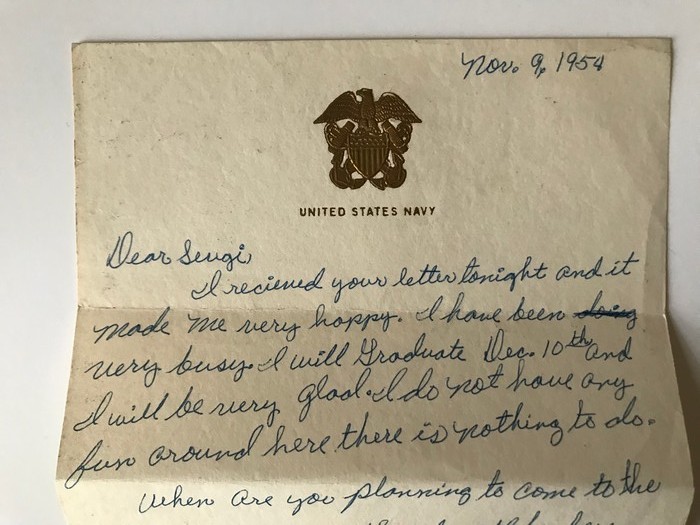 Nov. 9, 1954
UNITED STATES NAVY
Dear Sergi,
I recieved your letter tonight and it
made me very happy. I have been doing
very busy. I will Graduate Dec. 10th and
I will be very glad. I do not have any
fun around here there is nothing to do.
When are you planning to come to the